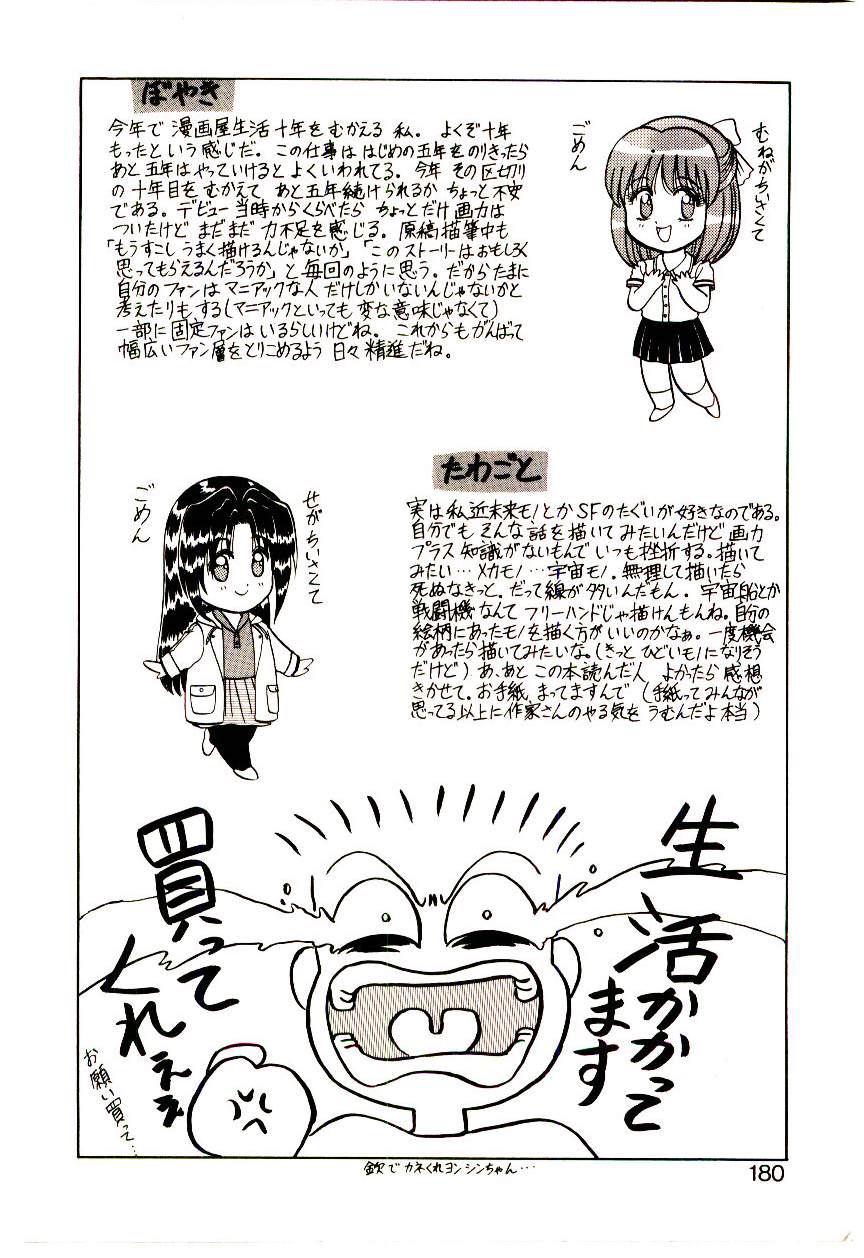 ぼやき
今年で 漫画屋生活十年をむかえる 私。よくぞ十年
もったという感じだ。この仕事は はじめの五年をのりきったら
あと五年はやっていけると よくいわれてる。今年 その区切り
の十年目を むかえて あと五年続けられるか ちょっと不安
である。デビュー当時からくらべたら ちょっとだけ 画力は
ついたけど まだまだ 力不足を感じる。原稿描筆中も
「もうすこし うまく描けるんじゃないか」「このストーリーはおもしろく
思ってもらえるんだろうか」と 毎回のように思う。だからたまに
自分の ファンは マニアックな人 だけしかいないんじゃないかと
考えたりも する(マニアックといっても 変な意味じゃなくて)
一部に 固定ファンは いるらしいけどね。これからもがんばって
幅広いファン層をとりこめるよう 日々 精進だね。
むねがちいさくて
ごめん
たわごと
実は私近未来モノとか SFのたぐいが好きなのである。
自分でも そんな話を描いて みたいんだけど 画力
プラス 知識がないもんで いつも挫折する。描いて
みたい…メカモノ…宇宙モノ。無理して描いたら
死ぬなきっと。だって線が多いんだもん。宇宙船とか
戦闘機なんて フリーハンドじゃ描けんもんね。自分の
絵柄にあったモノを描く方がいいのかなぁ。一度機会
があったら描いてみたいな。(きっと ひどいモノになりそう
だけど)あ、あと この本読んだ人 よかったら 感想
きかせて。お手紙 まってますんで (手紙って みんなが
思ってる以上に作家さんのやる気を うむんだよ本当)
せがちいさくて
ごめん
生活かかって
ます
買って
くれぇぇ
お願い買って…
金欠で カネくれヨン シンちゃん…
180